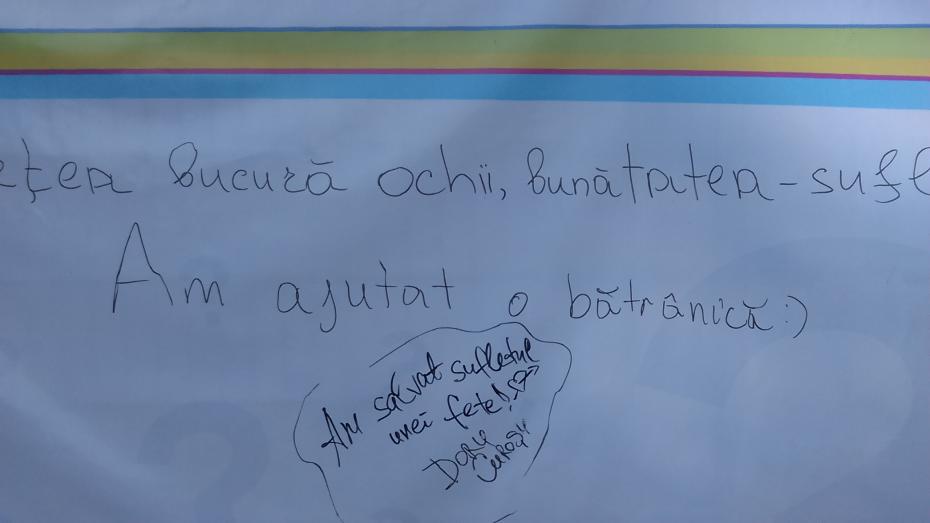 ețea bucură ochii, bunătatea - sufl
Am ajutat o bătrânică :)
Am salvat sufletul
unei fete!